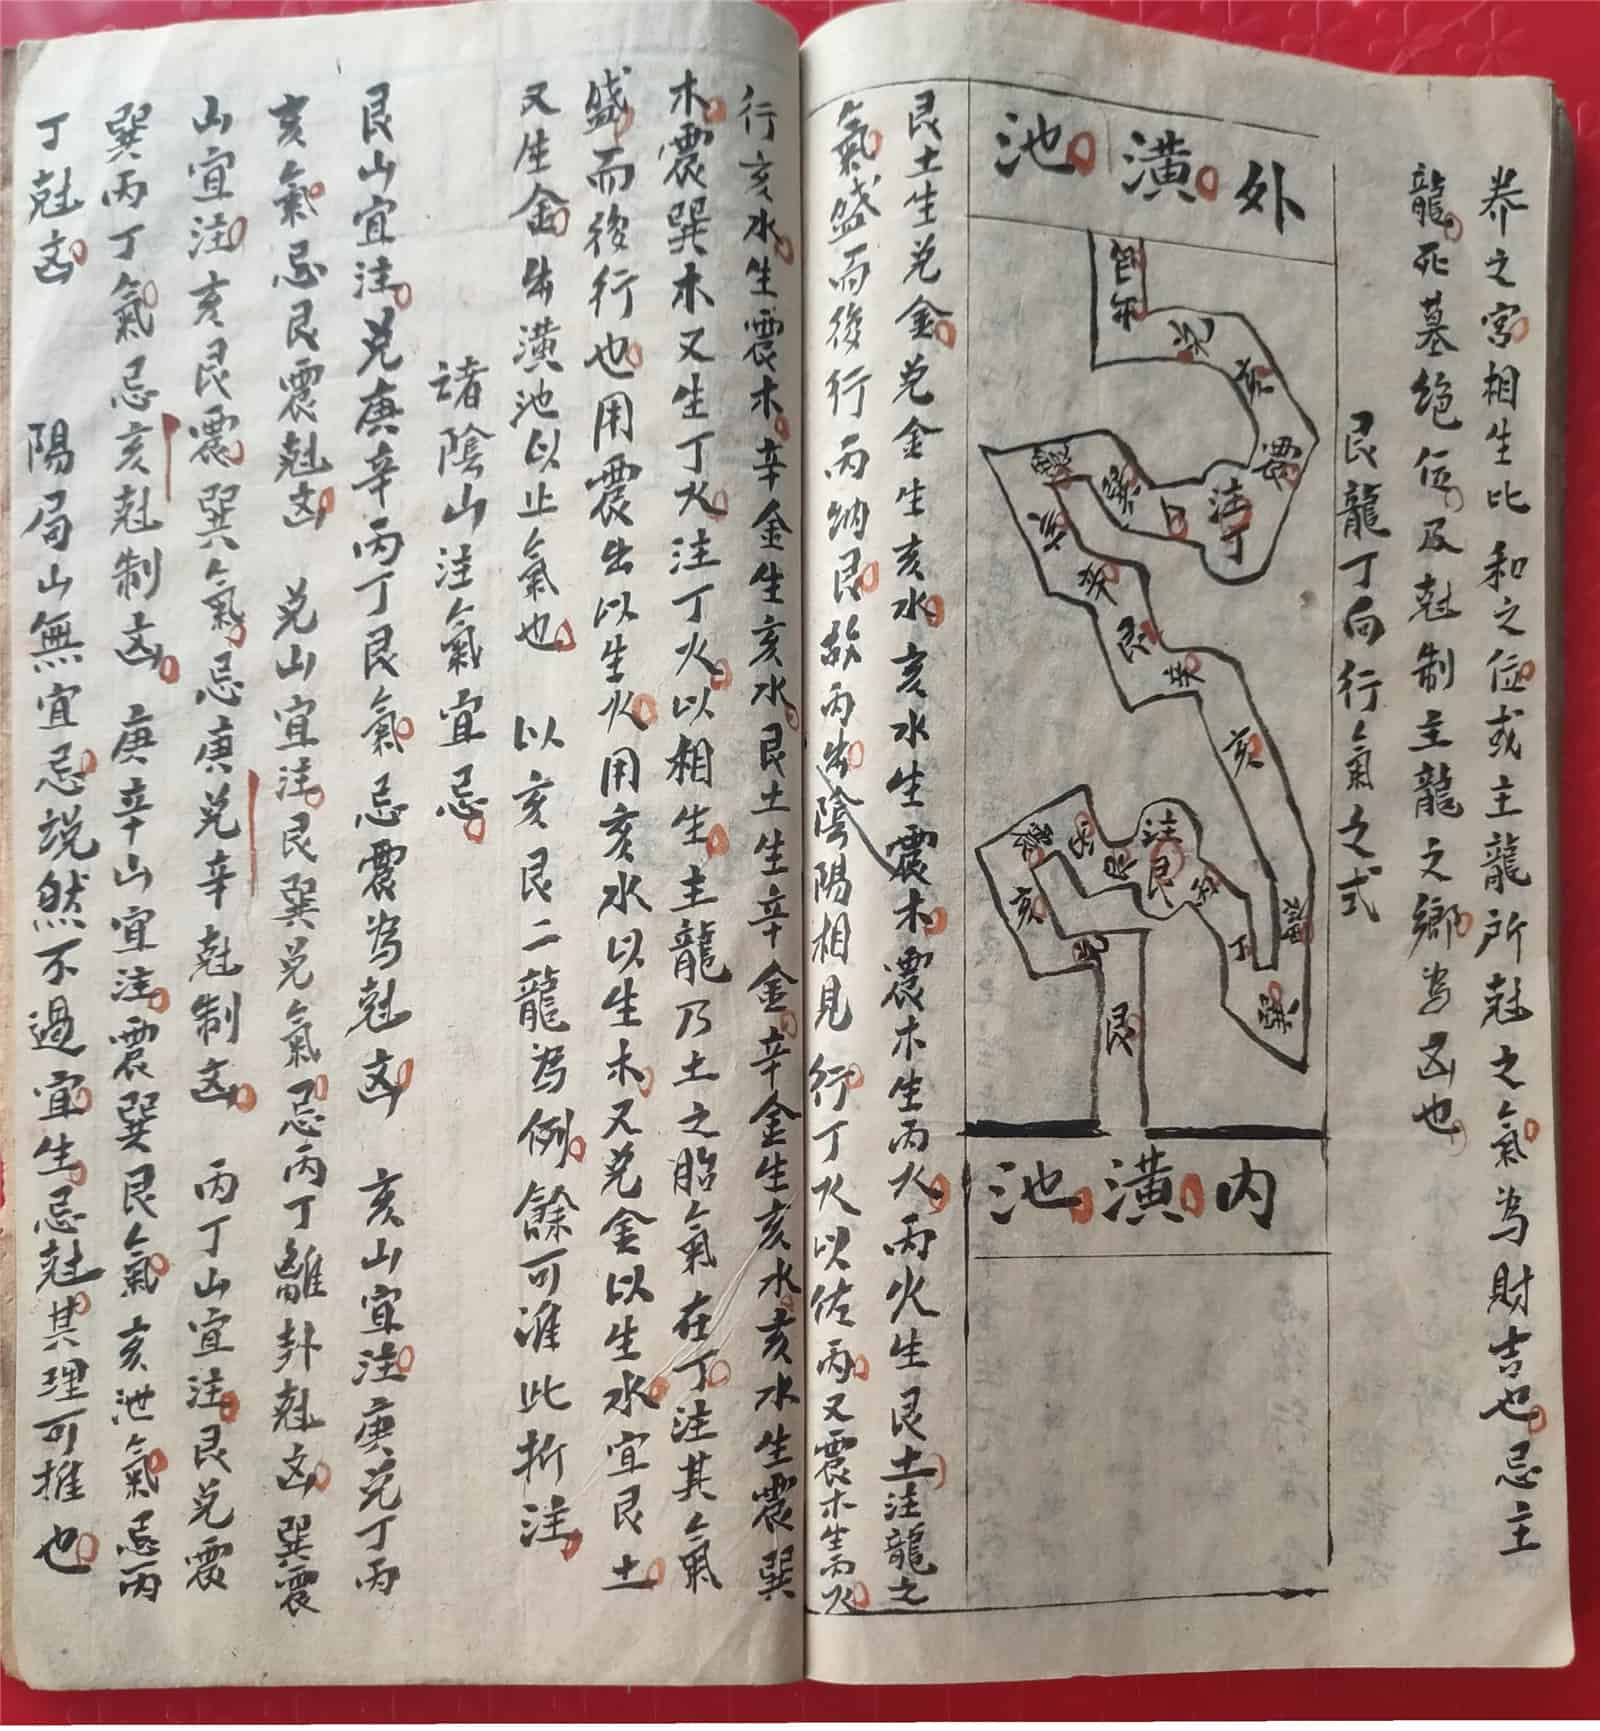 养之宮相生比和之位或主龍所尅之氣為財吉也忌主
龍死墓絕位及尅制主龍之鄉為凶也
艮龍丁向行氣之式
外潢池
兌
亥
震
注丁
巽
艮
亥
巽
丁
注艮
亥
艮
内潢池
艮土生兌金兌金生亥水亥水生震木震木生丙火丙火生艮土注龍之
氣盛而後行丙納艮故丙出陰陽相見行丁火以佐丙又震木生丙火
行亥水生震木辛金生亥水艮土生辛金辛金生亥水亥水生震巽
木震巽木又生丁火注丁火以相生主龍乃土之胎氣在丁注其氣
盛而後行也用震出以生火用亥水以生木又兌金以生水宜艮土
又生金出潢池以止氣也 以亥艮二龍為例餘可准此折注
諸陰山注氣宜忌
艮山宜注兌庚辛丙丁艮氣忌震為尅凶 亥山宜注庚兌丁丙
亥氣忌艮震尅凶 兌山宜注艮巽兌氣忌丙丁離卦尅凶巽震
山宜注亥艮震巽氣忌庚兌辛尅制凶 丙丁山宜注艮兌震
巽丙丁氣忌亥尅制凶 庚辛山宜注震巽艮氣亥泄氣忌丙
丁尅凶 陽局山無宜忌說然不過宜生忌尅其理可推也